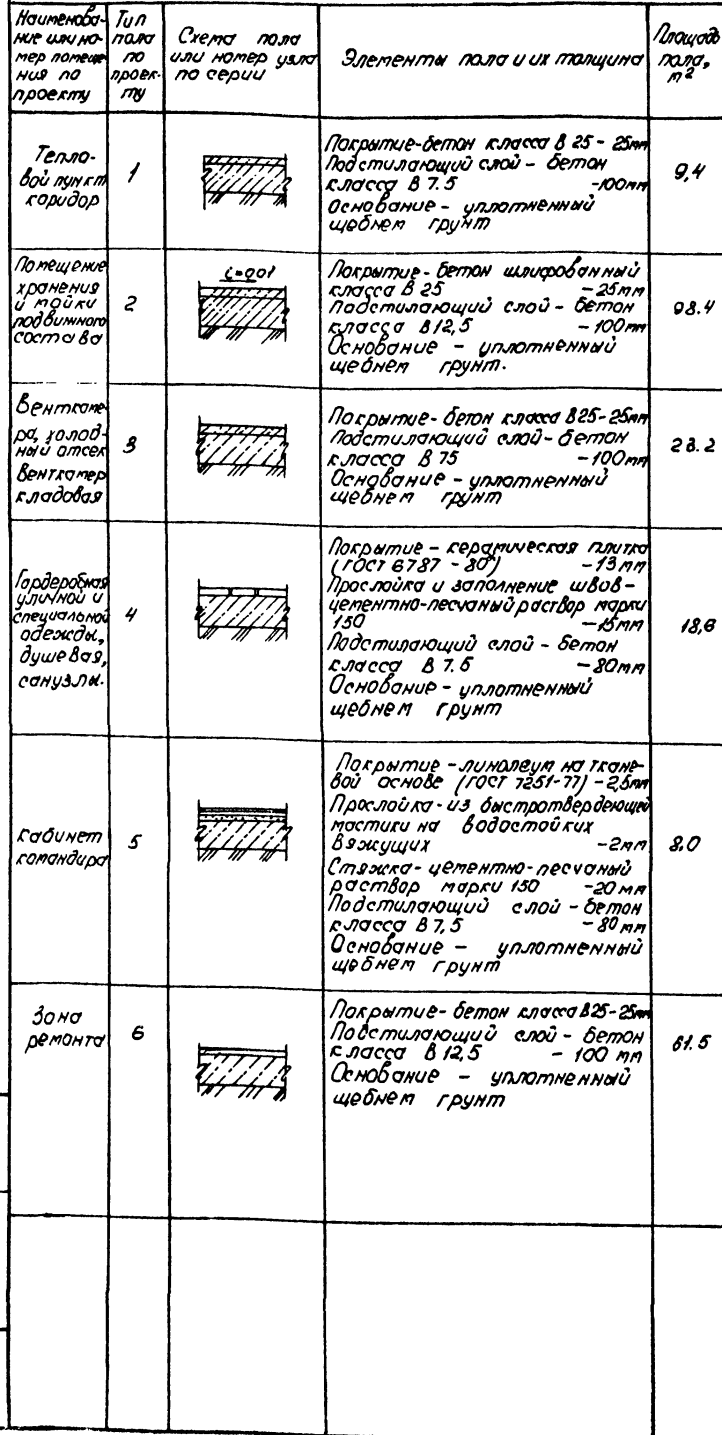 Наименова-
ние или но-
мер помеще-
ния по
проекту
Тип
пола
по
проек-
ту
Схема пола
или номер узла
по серии
Элементы пола и их толщина
Площадь
пола,
м²
Тепло-
вой пункт
коридор
1
Покрытие-бетон класса В 25 - 25мм
Подстилающий слой - бетон
класса В 7.5 -100мм
Основание - уплотненный
щебнем грунт
9,4
Помещение
хранения
и мойки
подвижного
состава
2
i=0,01
Покрытие- бетон шлифованный
класса В 25 - 25мм
Подстилающий слой - бетон
класса В12,5 - 100мм
Основание - уплотненный
щебнем грунт.
98.4
Венткаме-
ра, холод-
ный отсек
Венткамер
кладовая
3
Покрытие- бетон класса В25-25мм
Подстилающий слой- бетон
класса В 75 -100мм
Основание - уплотненный
щебнем грунт
28.2
Гардеробная
уличной и
специальной
одежды,
душевая,
санузлы.
4
Покрытие - керамическая плитка
(ГОСТ 6787 - 80) -13мм
Прослойка и заполнение швов-
цементно-песчаный раствор марки
150 -15мм
Подстилающий слой - бетон
класса В 7.5 -80мм
Основание - уплотненный
щебнем грунт
18,6
Кабинет
командира
5
Покрытие - линолеум на ткане-
вой основе (ГОСТ 7251-77) -2,5мм
Прослойка - из быстротвердеющей
мастики на водостойких
вяжущих -2мм
Стяжка- цементно-песчаный
раствор марки 150 -20мм
Подстилающий слой - бетон
класса В 7,5 - 80мм
Основание - уплотненный
щебнем грунт
8.0
Зона
ремонта
6
Покрытие- бетон класса В25-25мм
Подстилающий слой - бетон
класса В 12,5 - 100 мм
Основание - уплотненный
щебнем грунт
61.5